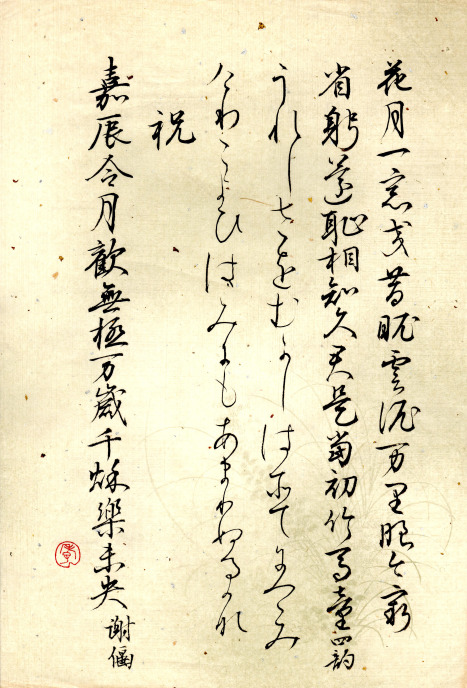 花月一窓交昔眤雲泥万里眼今窮
省躬還恥相知久君是當初竹馬童 四韵
うれしさをむかしはそてにつゝみ
けりこよひはみにもあまりぬるかな
祝
嘉辰令月歡無極万歳千秋樂未央 謝偃